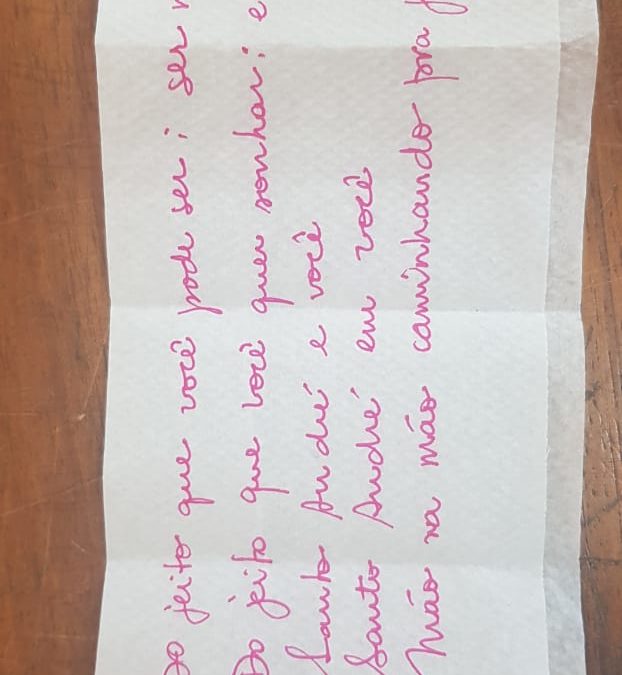 Do jeito que você pode ser; ser
Do jeito que você quer sonhar; e
Santo André e você
Santo André em você
Mão na mão caminhando pra